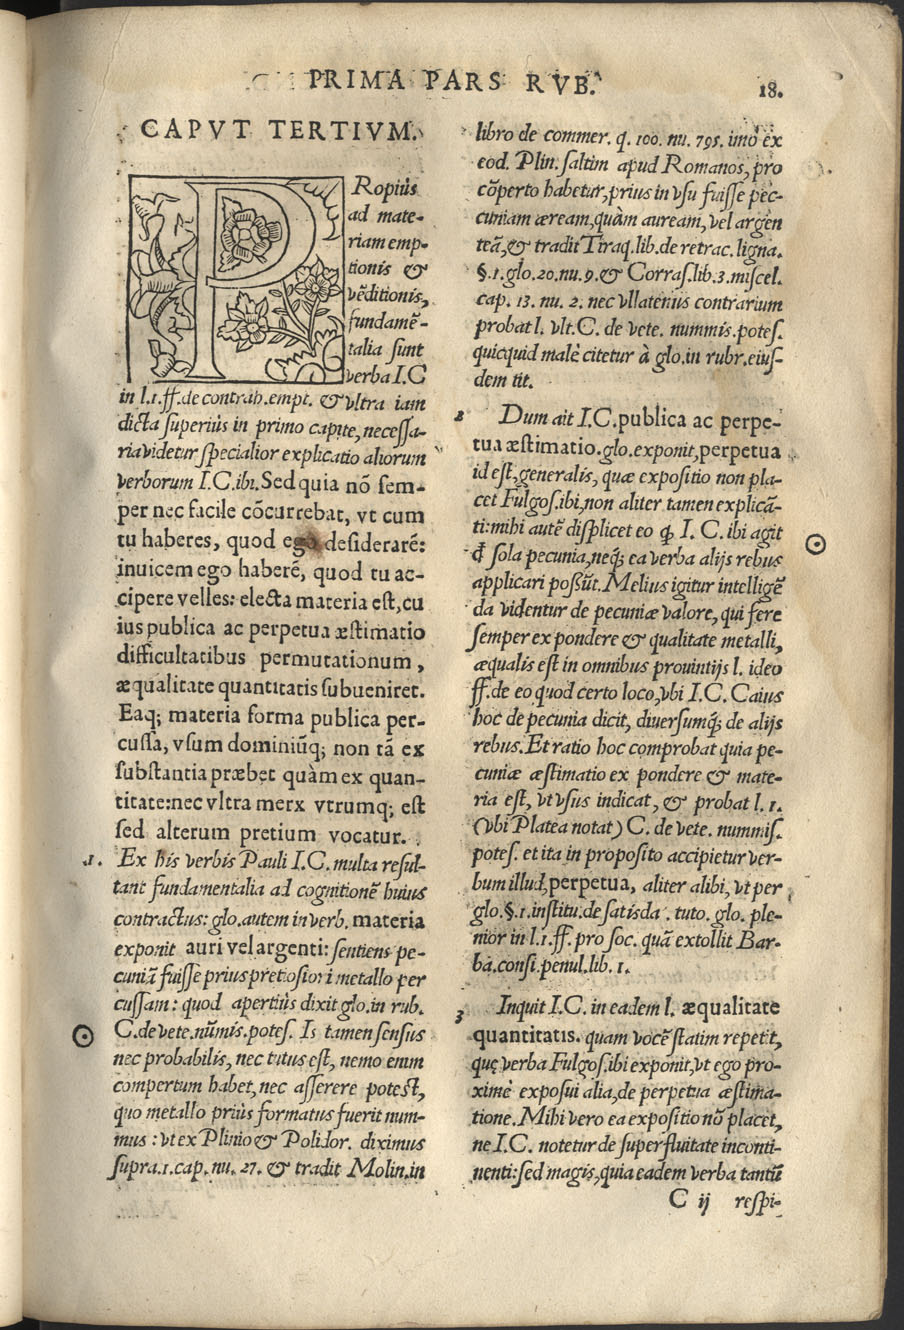 PRIMA PARS RVB.
18.
CAPVT TERTIVM.
PRopiùs
ad mate-
riam emp-
tionis &
vẽditionis,
fundamẽ-
talia sunt
verba I.C
in l.1.ff.de contrah.empt. & vltra iam
dicta superiùs in primo capite, necessa-
ria videtur specialior explicatio aliorum
verborum I.C.ibi. Sed quia nõ sem-
per nec facile cõcurrebat, vt cum
tu haberes, quod ego desiderarẽ:
inuicem ego haberẽ, quod tu ac-
cipere velles: electa materia est, cu
ius publica ac perpetua æstimatio
difficultatibus permutationum,
æqualitate quantitatis subueniret.
Eaq; materia forma publica per-
cussa, vsum dominiũq; non tã ex
substantia præbet quàm ex quan-
titate:nec vltra merx vtrumq; est
sed alterum pretium vocatur.
1. Ex his verbis Pauli I.C. multa resul-
tant fundamentalia ad cognitionẽ huius
contractus: glo.autem in verb. materia
exponit auri vel argenti: sentiens pe-
cuniã fuisse prius pretiosiori metallo per
cussam: quod apertiùs dixit glo.in rub.
C.de vete.nũmis.potes. Is tamen sensus
nec probabilis, nec tutus est, nemo enim
compertum habet, nec asserere potest,
quo metallo priùs formatus fuerit num-
mus: vt ex Plinio & Polidor. diximus
supra.1.cap.nu.27. & tradit Molin.in
libro de commer. q. 100. nu. 795. imò ex
eod. Plin. saltim apud Romanos, pro
cõperto habetur, prius in vsu fuisse pec-
cuniam æream, quàm auream, vel argen
teã, & tradit Tiraq.lib.de retrac.ligna.
§.1.glo.20.nu.9.& Corras.lib.3.miscel.
cap. 13. nu. 2. nec vllatenùs contrarium
probat l. vlt.C. de vete. nummis.potes.
quicquid malè citetur à glo.in rubr.eius-
dem tit.
2 Dum ait I.C.publica ac perpe-
tua æstimatio.glo.exponit, perpetua
id est, generalis, quæ expositio non pla-
cet Fulgos.ibi, non aliter tamen explicã-
ti:mihi autẽ displicet eo ꝙ I. C. ibi agit
đ sola pecunia, neq; ea verba alijs rebus
applicari possũt. Melius igitur intelligẽ
da videntur de pecuniæ valore, qui fere
semper ex pondere & qualitate metalli,
æqualis est in omnibus prouintijs l. ideo
ff.de eo quod certo loco, vbi I.C.Caius
hoc de pecunia dicit, diuersumq; de alijs
rebus. Et ratio hoc comprobat quia pe-
cuniæ æstimatio ex pondere & mate-
ria est, vt vsus indicat, & probat l. 1.
(vbi Platea notat) C. de vete. nummis.
potes. et ita in proposito accipietur ver-
bum illud, perpetua, aliter alibi, vt per
glo.§.1.institu.de satisda. tuto. glo. ple-
nior in l.1.ff. pro soc. quã extollit Bar-
ba.consi.penul.lib. 1.
3 Inquit I.C. in eadem l. æqualitate
quantitatis. quam vocẽ statim repetit,
que verba Fulgos.ibi exponit, vt ego pro-
ximè exposui alia, de perpetua æstima-
tione. Mihi vero ea expositio nõ placet,
ne I.C. notetur de superfluitate inconti-
nenti: sed magis, quia eadem verba tantũ
C ij respi-